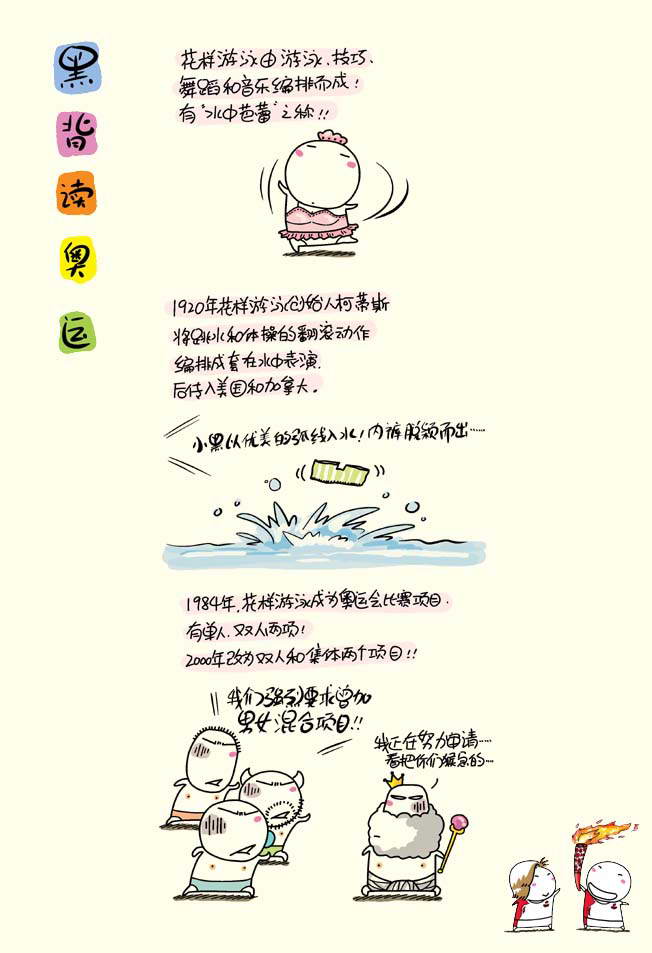 黑
背
读
奥
运
花样游泳由游泳、技巧、
舞蹈和音乐编排而成!
有“水中芭蕾”之称!!
1920年花样游泳创始人柯蒂斯
将跳水和体操的翻滚动作
编排成套在水中表演.
后传入美国和加拿大。
小黑以优美的弧线入水!内裤脱颖而出……
1984年,花样游泳成为奥运会比赛项目.
有单人.双人两项!
2000年改为双人和集体两个项目!!
我们强烈要求增加
男女混合项目!!
我正在努力申请……
看把你们猴急的…